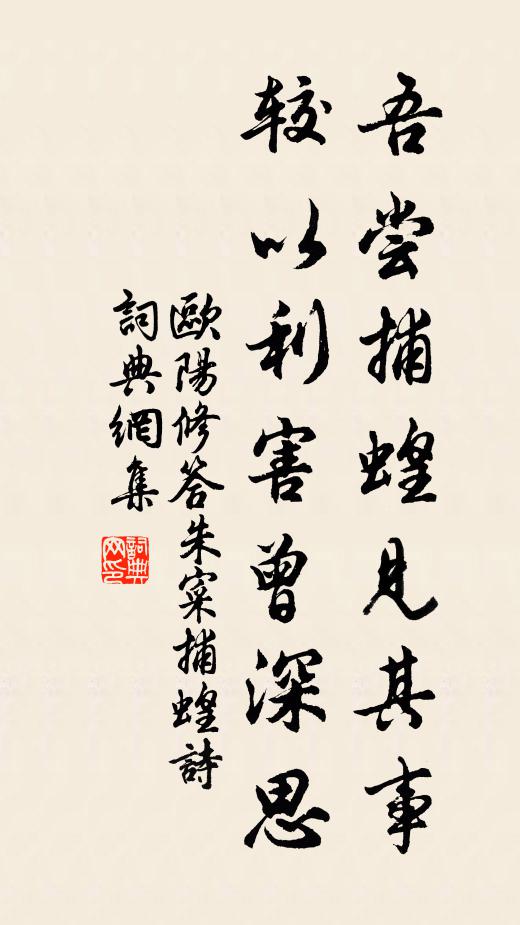 吾尝捕蝗见其事
较以利害曾深思
歐陽修答朱寀捕蝗詩
詞典網集
詞典网印